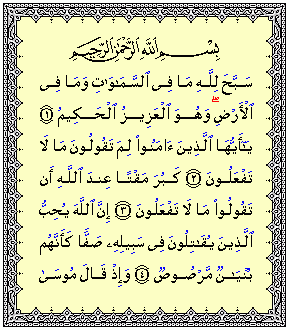 بِسْمِ ٱللَّهِ ٱلرَّحْمَٰنِ ٱلرَّحِيمِ
سَبَّحَ لِلَّهِ مَا فِى ٱلسَّمَٰوَٰتِ وَمَا فِى
ٱلْأَرْضِ ۖ وَهُوَ ٱلْعَزِيزُ ٱلْحَكِيمُ ﴿١﴾
يَٰٓأَيُّهَا ٱلَّذِينَ ءَامَنُوا۟ لِمَ تَقُولُونَ مَا لَا
تَفْعَلُونَ ﴿٢﴾ كَبُرَ مَقْتًا عِندَ ٱللَّهِ أَن
تَقُولُوا۟ مَا لَا تَفْعَلُونَ ﴿٣﴾ إِنَّ ٱللَّهَ يُحِبُّ
ٱلَّذِينَ يُقَٰتِلُونَ فِى سَبِيلِهِۦ صَفًّا كَأَنَّهُم
بُنْيَٰنٌ مَّرْصُوصٌ ﴿٤﴾ وَإِذْ قَالَ مُوسَىٰ